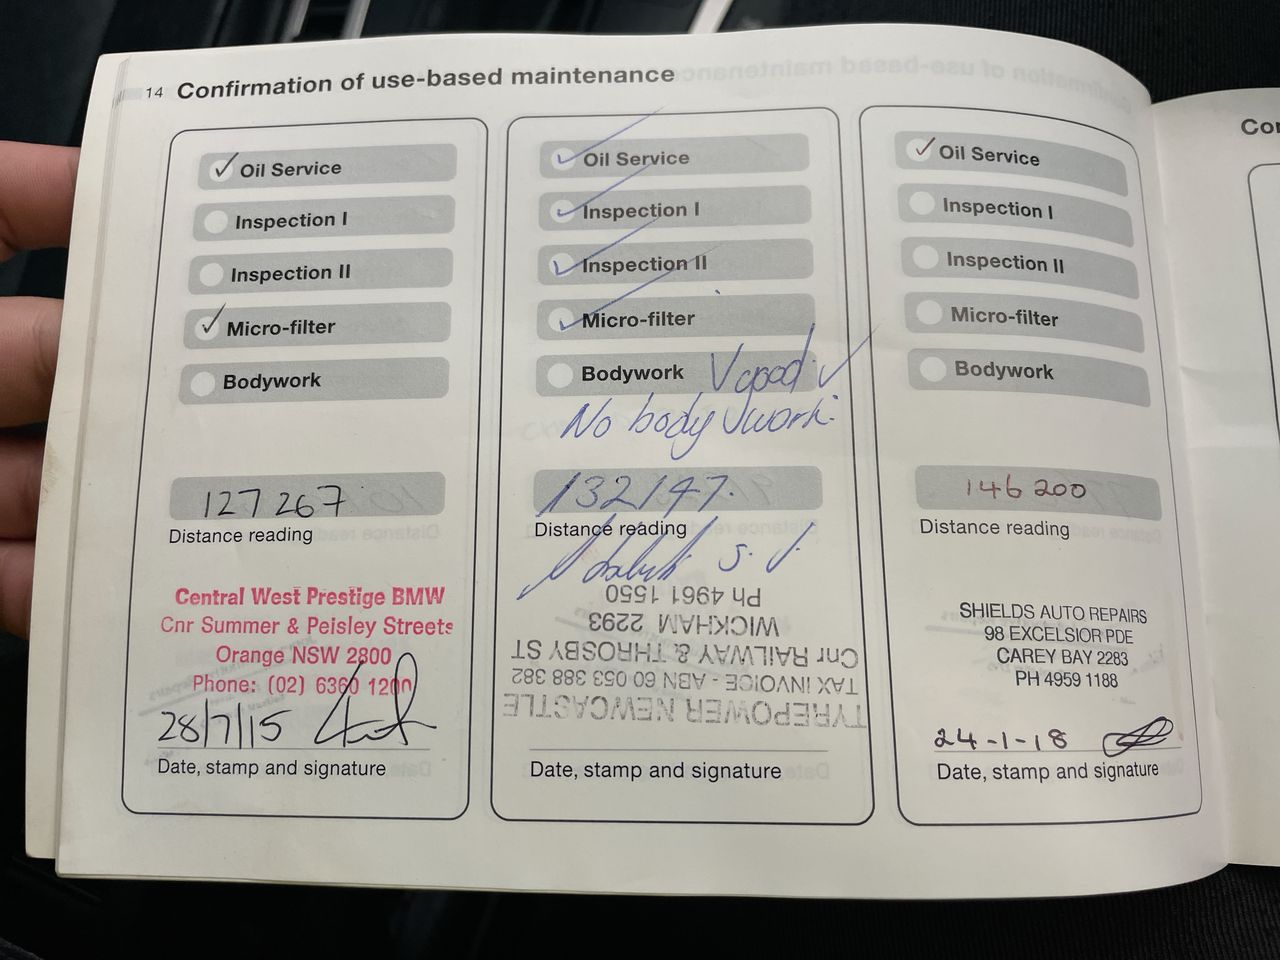 14 Confirmation of use-based maintenance
Oil Service
Inspection I
Inspection II
Micro-filter
Bodywork
127 267
Distance reading
Central West Prestige BMW
Cnr Summer & Peisley Streets
Orange NSW 2800
Phone: (02) 6360 1200
28/7/15
Date, stamp and signature
Oil Service
Inspection I
Inspection II
Micro-filter
Bodywork V good
No body work.
132147.
Distance reading
S. J.
TYREPOWER NEWCASTLE
TAX INVOICE - ABN 60 053 888 382
Cnr RAILWAY & THROSBY ST
WICKHAM 2293
Ph 4961 1550
Date, stamp and signature
Oil Service
Inspection I
Inspection II
Micro-filter
Bodywork
146 200
Distance reading
SHIELDS AUTO REPAIRS
98 EXCELSIOR PDE
CAREY BAY 2283
PH 4959 1188
24-1-18
Date, stamp and signature